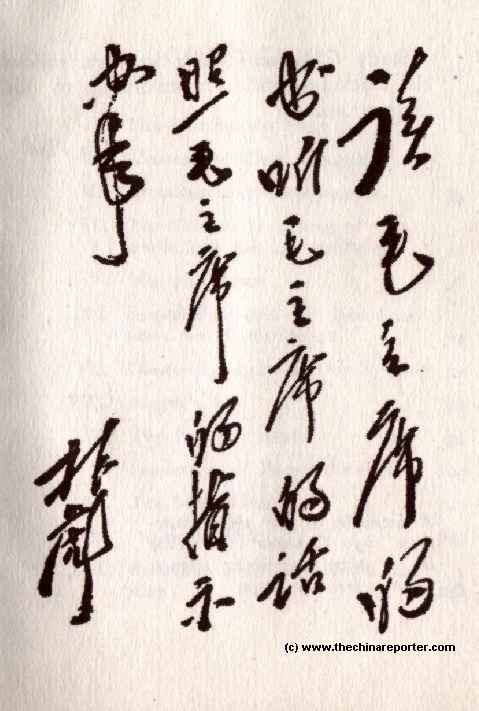 读毛主席的
书听毛主席的话
照毛主席的指示
办事
林彪
(c) www.thechinareporter.com